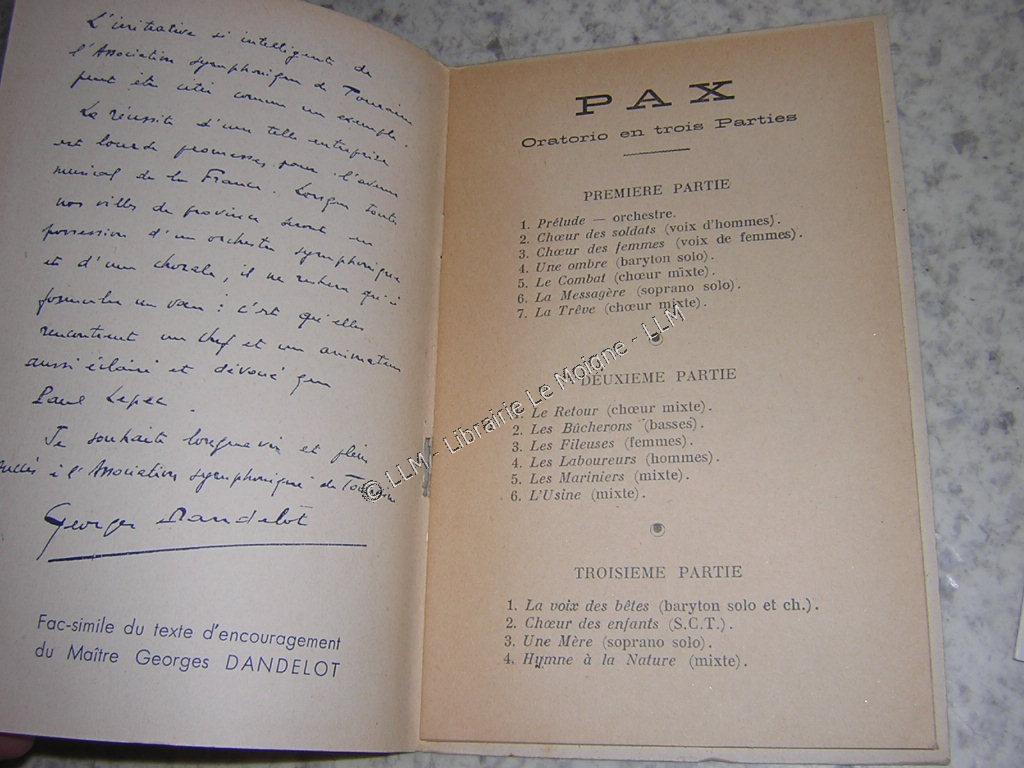 L'initiative si intelligente de
l'Association symphonique de Touraine
peut être citée comme un exemple.
La réussite d'une telle entreprise
est lourde promesses pour l'avenir
musical de la France. Lorsque toutes
nos villes de province seront en
possession d'un orchestre symphonique
et d'une chorale, il ne restera qu'à
formuler un vœu : c'est qu'elles
rencontrent un chef et un animateur
aussi éclairé et dévoué que
Paul
Je souhaite longue vie et plein
succès à l'Association symphonique de Touraine
Georges Dandelot
Fac-simile du texte d'encouragement
du Maître Georges DANDELOT
PAX
Oratorio en trois Parties
PREMIERE PARTIE
1. Prélude — orchestre.
2. Chœur des soldats (voix d'hommes).
3. Chœur des femmes (voix de femmes).
4. Une ombre (baryton solo).
5. Le Combat (chœur mixte).
6. La Messagère (soprano solo).
7. La Trêve (chœur mixte).
DEUXIEME PARTIE
Le Retour (chœur mixte).
2. Les Bûcherons (basses).
3. Les Fileuses (femmes).
4. Les Laboureurs (hommes).
5. Les Mariniers (mixte).
6. L'Usine (mixte).
TROISIEME PARTIE
1. La voix des bêtes (baryton solo et ch.).
2. Chœur des enfants (S.C.T.).
3. Une Mère (soprano solo).
4. Hymne à la Nature (mixte).
© LLM - Librairie Le Moigne - LLM